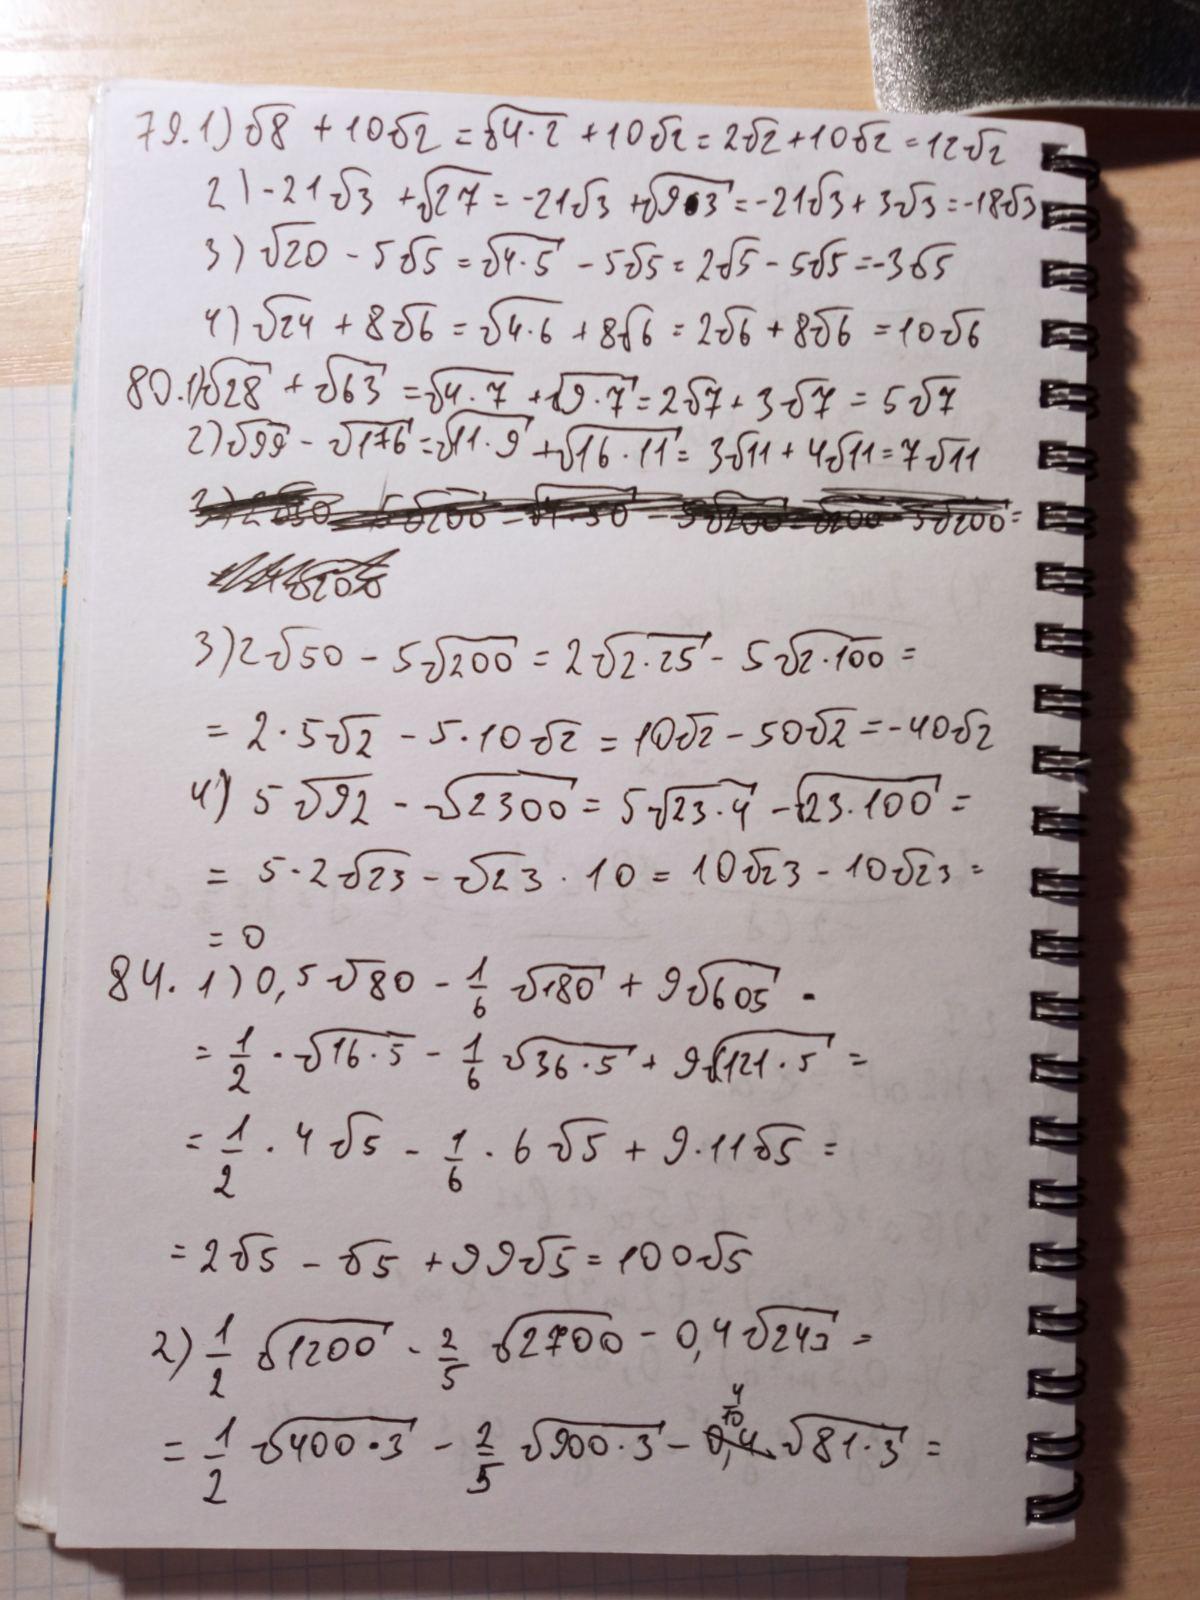 79.1) √8 + 10√2 = √4·2 + 10√2 = 2√2 + 10√2 = 12√2
2) -21√3 + √27 = -21√3 + √9·3 = -21√3 + 3√3 = -18√3
3) √20 - 5√5 = √4·5 - 5√5 = 2√5 - 5√5 = -3√5
4) √24 + 8√6 = √4·6 + 8√6 = 2√6 + 8√6 = 10√6
80.1) √28 + √63 = √4·7 + √9·7 = 2√7 + 3√7 = 5√7
2) √99 - √176 = √11·9 + √16·11 = 3√11 + 4√11 = 7√11
3) 2√50 - 5√200 = 2√2·25 - 5√2·100 =
= 2·5√2 - 5·10√2 = 10√2 - 50√2 = -40√2
4) 5√92 - √2300 = 5√23·4 - √23·100 =
= 5·2√23 - √23·10 = 10√23 - 10√23 =
= 0
84. 1) 0,5√80 - 1/6 √180 + 9√605 -
= 1/2 · √16·5 - 1/6 √36·5 + 9√121·5 =
= 1/2 · 4√5 - 1/6 · 6√5 + 9·11√5 =
= 2√5 - √5 + 99√5 = 100√5
2) 1/2 √1200 - 2/5 √2700 - 0,4√243 =
= 1/2 √400·3 - 2/5 √900·3 - 4/10 √81·3 =